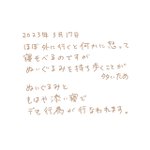 2023年3月17日
ほぼ外に行くと何かに思って
寝そべるのですが
ぬいぐるみを持ち歩くことが
多いため
ぬいぐるみと
もはや添い寝で
デモ行為が行なわれます。